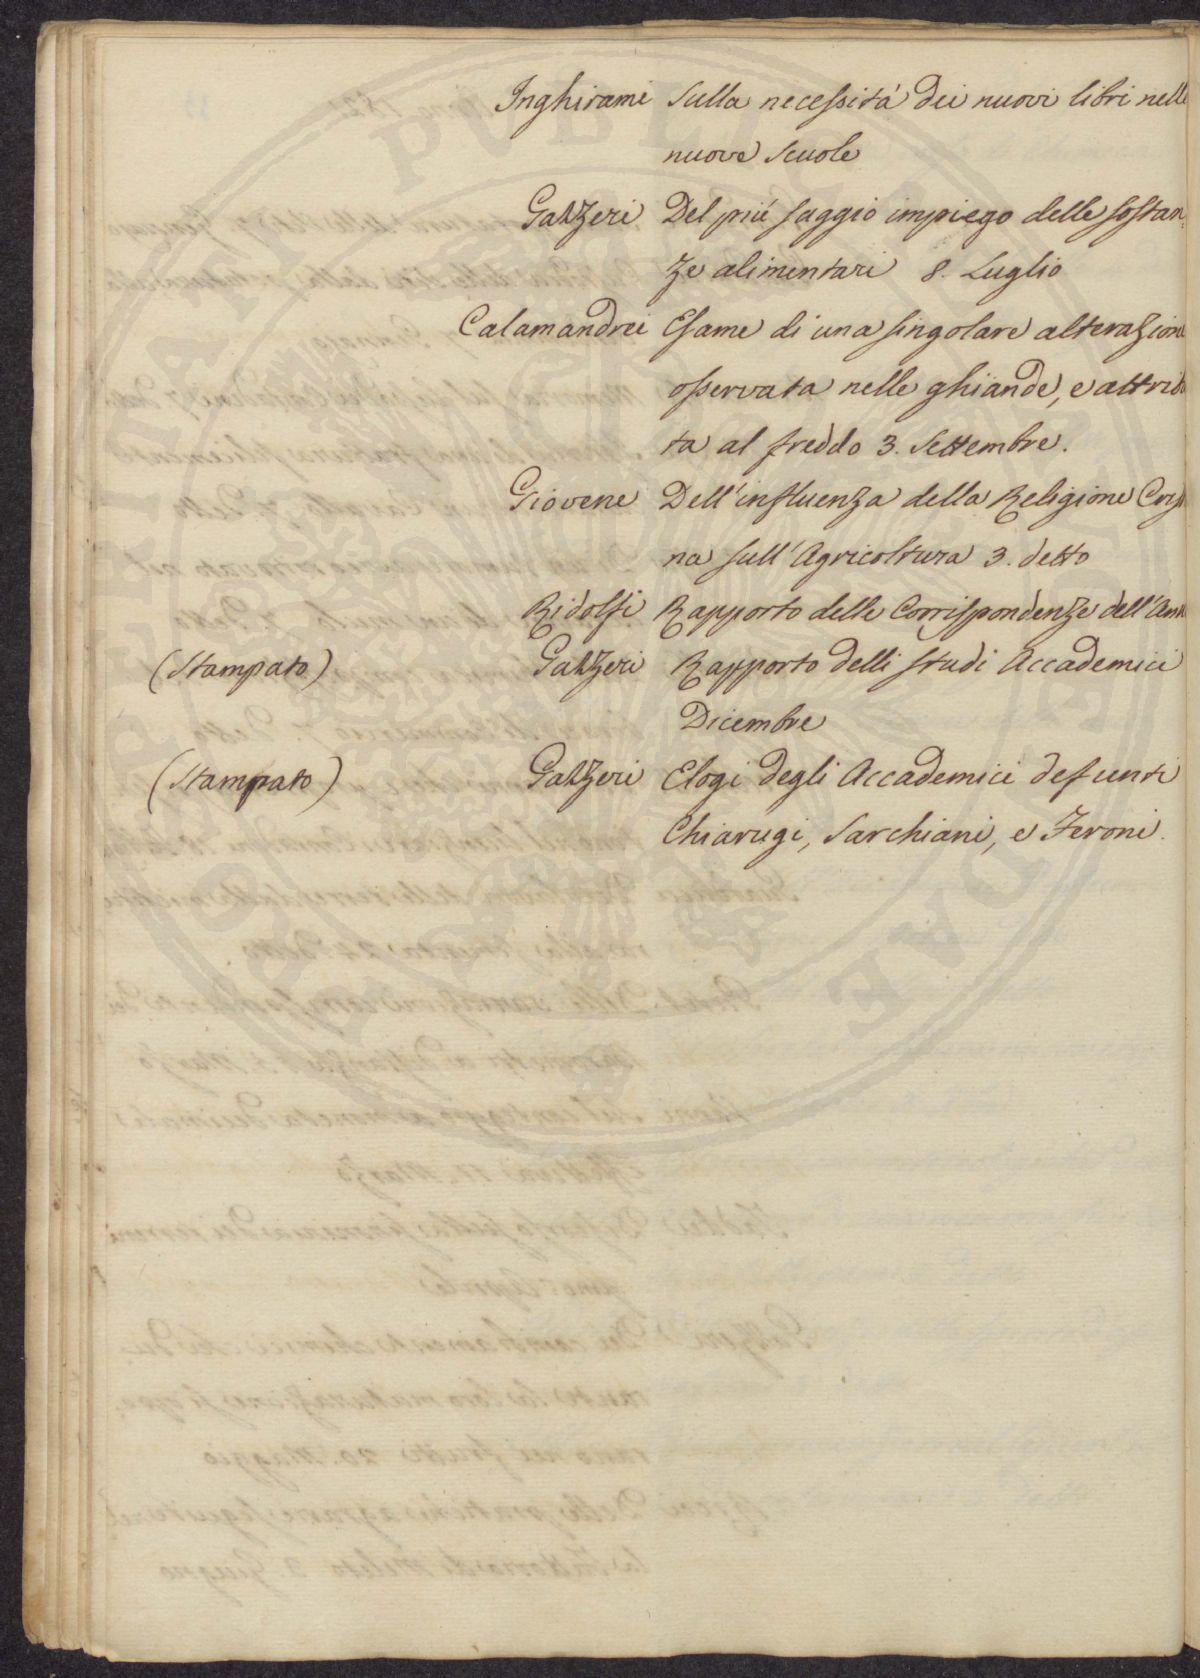 Inghirami Sulla necessitá dei nuovi libri nelle
nuove Scuole
Gazzeri Del piú saggio impiego delle sostan
ze alimentari 8. Luglio
Calamandrei Esame di una singolare alterazione
osservata nelle ghiande, e attribu
ta al freddo 3. Settembre.
Giovene Dell'influenza della Religione Cris
na sull'Agricoltura 3. detto
Ridolfi Rapporto delle Corrispondenze dell'Ann
(Stampato) Gazzeri Rapporto delli studi Accademici
Dicembre
(Stampato) Gazzeri Elogi degli Accademici defunti
Chiarugi, Sarchiani, e Feroni.